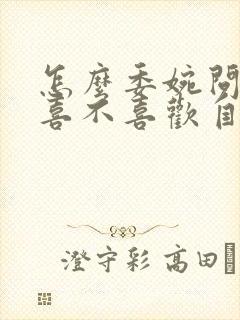 怎麼委婉問
喜不喜歡自
澄守彩 高田